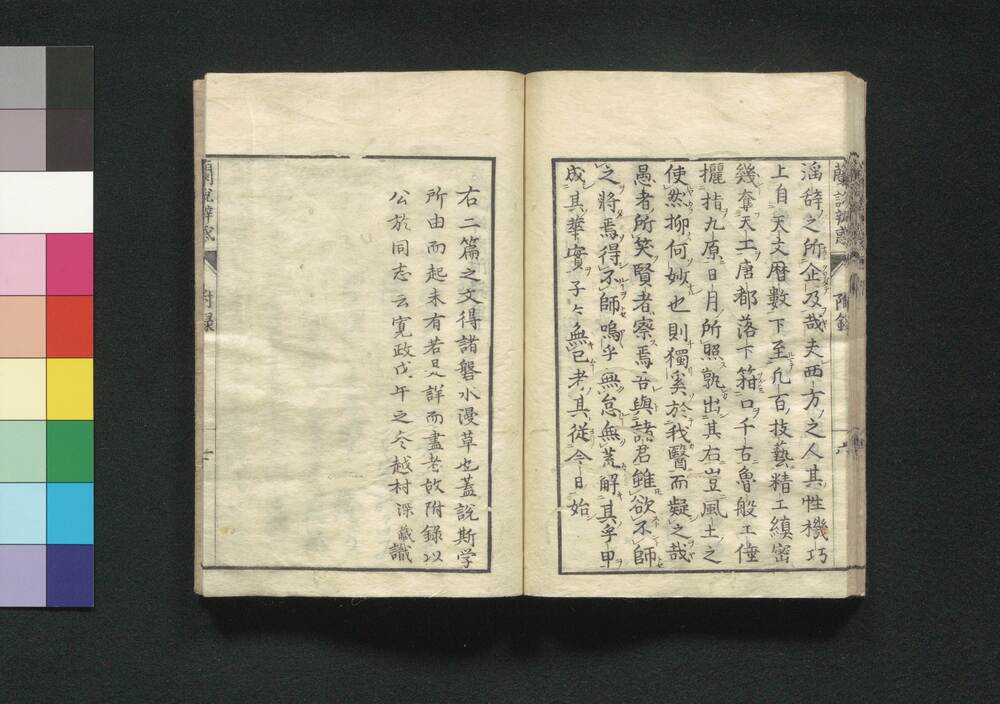 蘭説辨惑 附録 六
淫辞之所企及哉夫西方之人其性機巧
上自天文暦數下至凡百技藝精工縝密
幾奪天工唐都落下箝口千古魯般工倕
攦指九原日月所照孰出其右豈風土之
使然抑何妙也則獨奚於我醫而疑之哉
愚者所笑賢者察焉吾與諸君雖欲不師
之將焉得不師嗚乎無怠無荒解其孚甲
成其華實子々無已者其從今日始
右二篇之文得諸磐水漫草也蓋說斯学
所由而起未有若是詳而盡者故附錄以
公於同志云寛政戊午之冬越村深蔵識
蘭說辨惑 附録